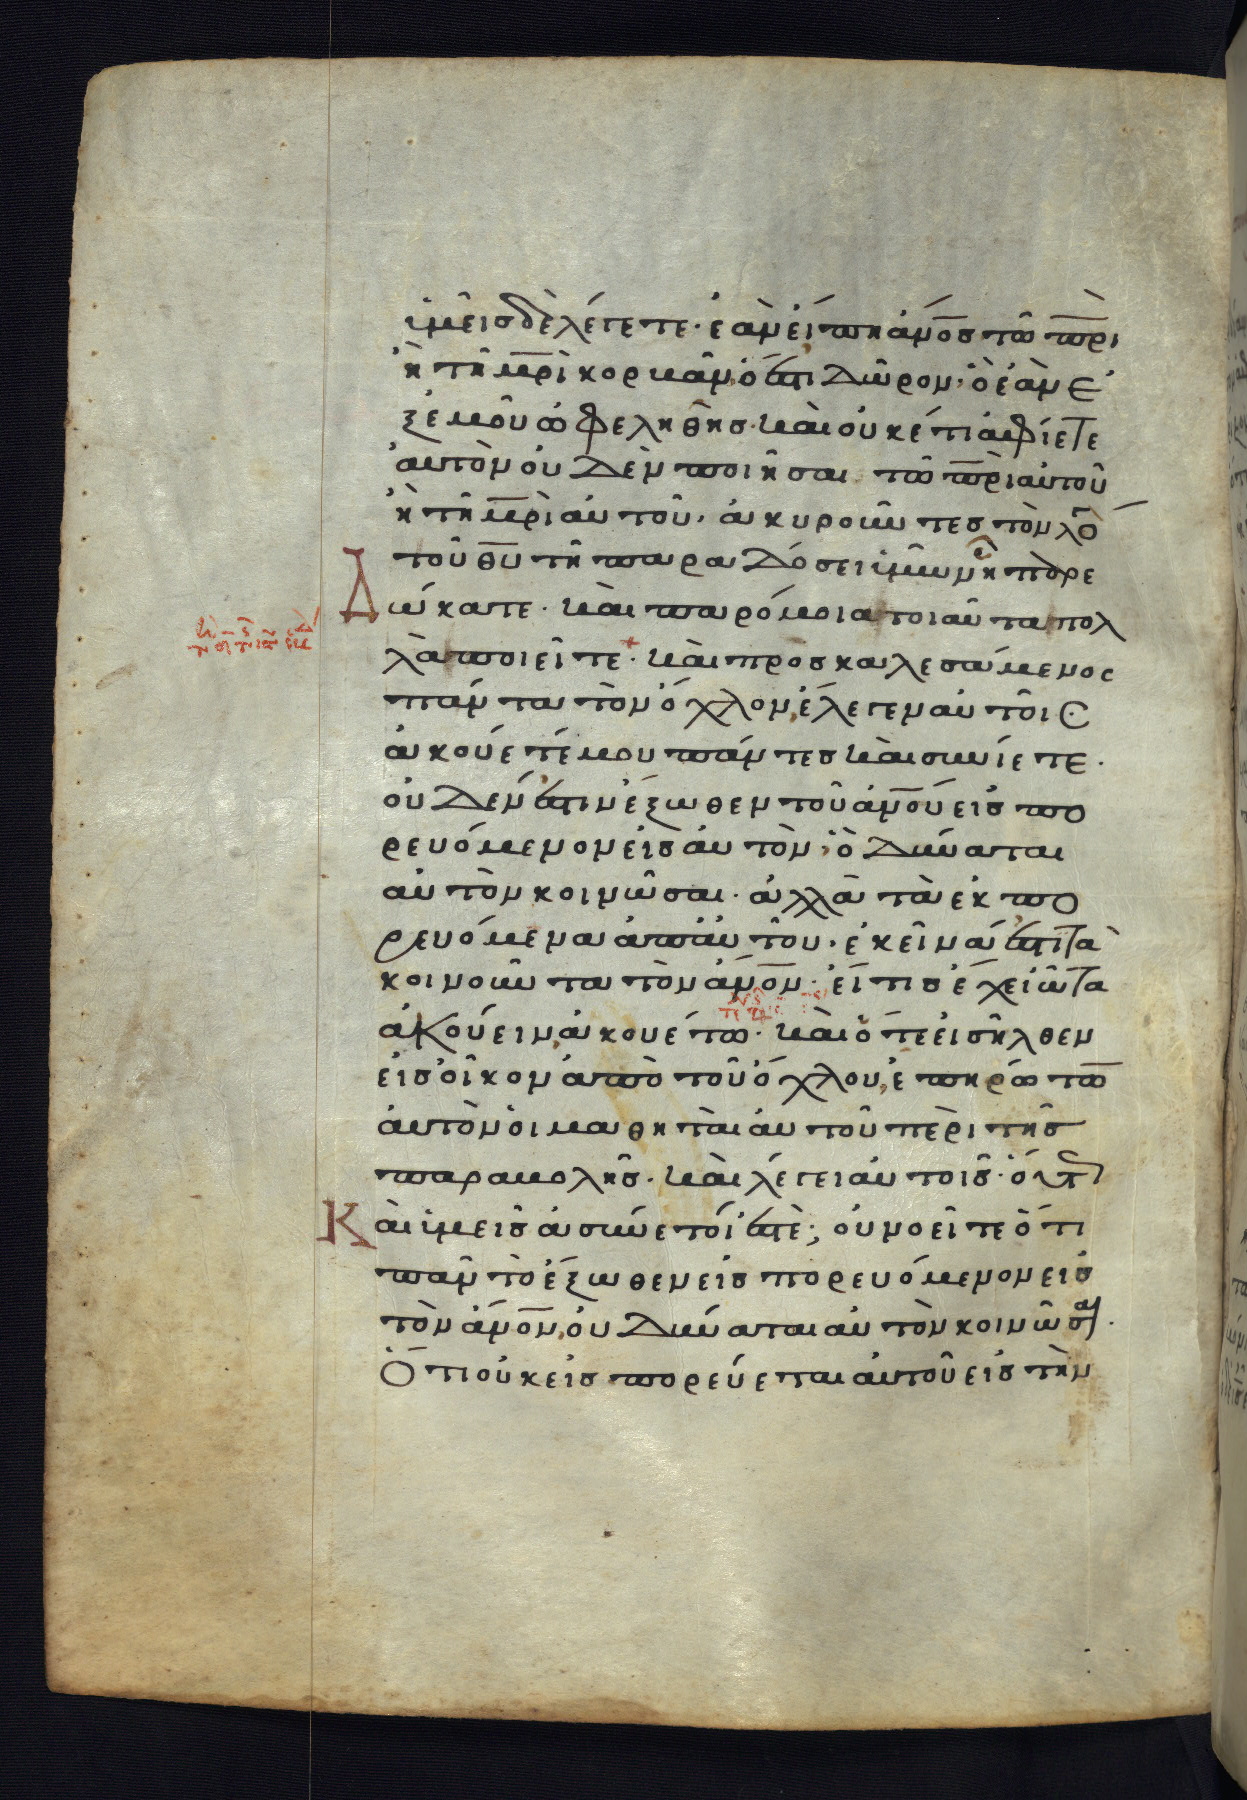 ὑμεῖς δὲ λέγετε· ἐὰν εἴπη ἄν̅ο̅ς τῶ π̅ρ̅ὶ
ἢ τῆ μ̅ρ̅ὶ κορβᾶν, ὅ ἐστι δῶρον, ὃ ἐὰν ἐ
ξ ἐμοῦ ὠφεληθῆς· καὶ οὐκέτι ἀφίετε
αὐτὸν οὐδὲν ποιῆσαι τῶ π̅ρ̅ὶ αὐτοῦ
ἢ τῆ μ̅ρ̅ὶ αὐτοῦ, ἀκυροῦντες τὸν λό
τοῦ θ̅υ̅ τῆ παραδόσει ὑμῶν ἧ παρε
Δώκατε· καὶ παρόμοια τοιαῦτα πολ
λὰ ποιεῖτε· καὶ προσκαλεσάμενος
πάντα τὸν ὄχλον, ἔλεγεν αὐτοῖς·
ἀκούετέ μου πάντες καὶ συνίετε·
οὐδέν ἐστιν ἔξωθεν τοῦ ἀν̅ο̅ύ εἰσπο
ρευόμενον εἰς αὐτὸν, ὃ δύναται
αὐτὸν κοινῶσαι· ἀλλὰ τὰ ἐκπο
ρευόμενα ἀπ' αὐτοῦ, ἐκεῖνά ἐστι τὰ
κοινοῦντα τὸν ἄν̅ο̅ν· εἴ τις ἔχει ὦτα
ἀκούειν, ἀκουέτω· καὶ ὅτε εἰσῆλθεν
εἰς οἶκον ἀπὸ τοῦ ὄχλου, ἐπηρώτω
αὐτὸν οἱ μαθηταὶ αὐτοῦ περὶ τῆς
παραβολῆς· καὶ λέγει αὐτοῖς· οὕτ
Καὶ ὑμεῖς ἀσύνετοί ἐστὲ; οὐ νοεῖτε ὅτι
πᾶν τὸ ἔξωθεν εἰσπορευόμενον εἰς
τὸν ἄν̅ο̅ν, οὐ δύναται αὐτὸν κοινῶσαι·
Ὅτι οὐκ εἰσπορεύεται αὐτοῦ εἰς τὴν